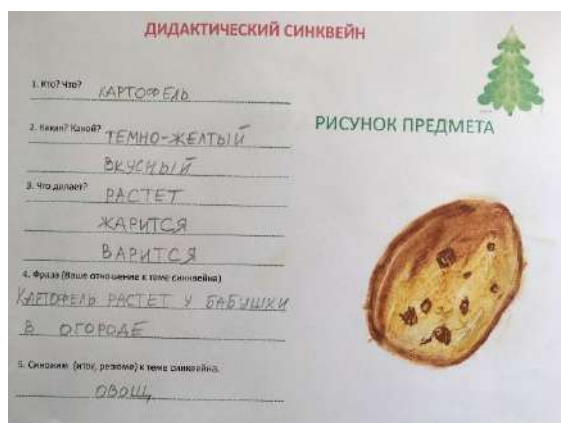 ДИДАКТИЧЕСКИЙ СИНКВЕЙН
1. Кто? Что?
КАРТОФЕЛЬ
2. Какая? Какой?
ТЕМНО-ЖЕЛТЫЙ
ВКУСНЫЙ
3. Что делает?
РАСТЕТ
ЖАРИТСЯ
ВАРИТСЯ
4. Фраза (Ваше отношение к теме синквейна)
КАРТОФЕЛЬ РАСТЕТ У БАБУШКИ
В ОГОРОДЕ
5. Синоним (итог, резюме) к теме синквейна.
ОВОЩ
РИСУНОК ПРЕДМЕТА